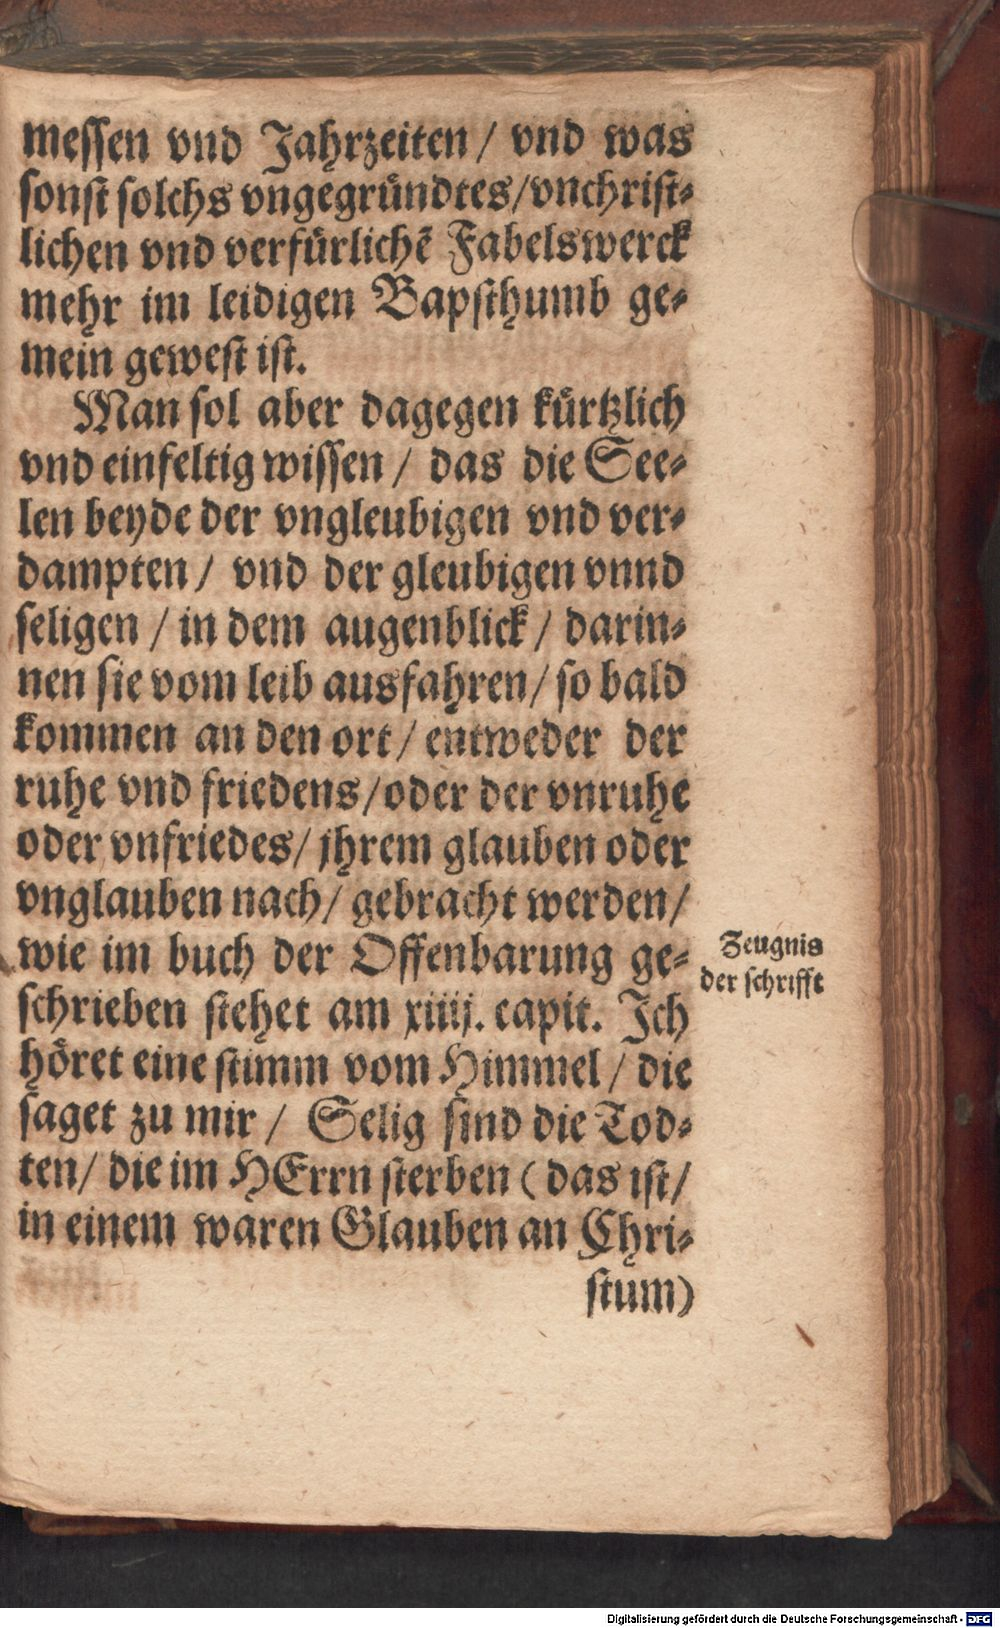 messen vnd Jahrzeiten / vnd was
sonst solchs vngegründtes/vnchrist⸗
lichen vnd verfürlichē Fabelswerck
mehr im leidigen Bapsthumb ge⸗
mein gewest ist.
Man sol aber dagegen kürtzlich
vnd einfeltig wissen / das die See⸗
len beyde der vngleubigen vnd ver⸗
dampten / vnd der gleubigen vnnd
seligen / in dem augenblick / darin⸗
nen sie vom leib ausfahren / so bald
kommen an den ort / entweder der
ruhe vnd friedens/oder der vnruhe
oder vnfriedes/ jhrem glauben oder
vnglauben nach/ gebracht werden/
wie im buch der Offenbarung ge⸗
Zeugnis
der schrifft
schrieben stehet am xiiij. capit. Ich
höret eine stimm vom Himmel / die
saget zu mir / Selig sind die Tod⸗
ten/ die im HErrn sterben ( das ist/
in einem waren Glauben an Chri⸗
stum)
Digitalisierung gefördert durch die Deutsche Forschungsgemeinschaft - DFG